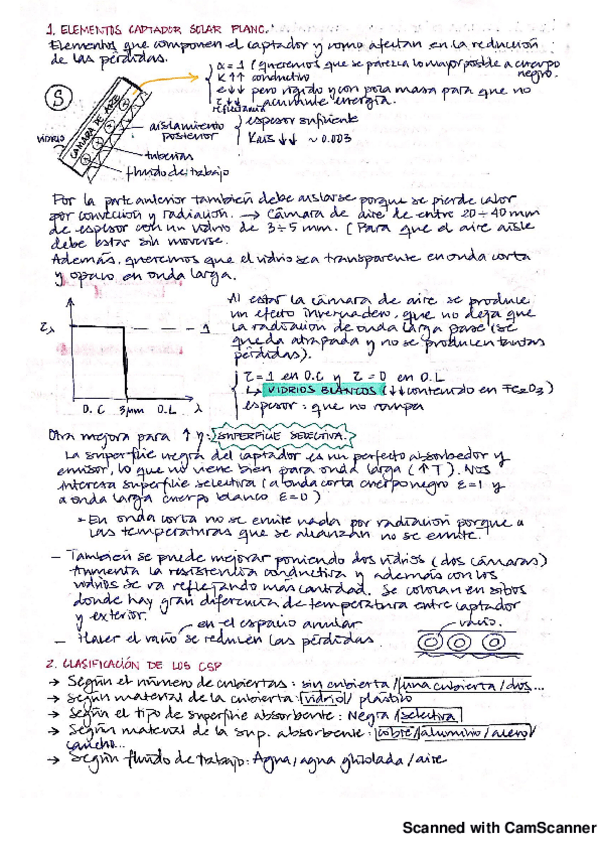 1. ELEMENTOS CAPTADOR SOLAR PLANO.
Elementos que componen el captador y como afectan en la reducción
de las pérdidas.
α = 1 (queremos que se parezca lo mayor posible a cuerpo
negro.
K ↑↑ conductivo
e ↓↓ pero rígido y con poca masa para que no
acumule energía.
reflectancia
S
VIDRIO
CÁMARA DE AIRE
aislamiento
posterior
espesor suficiente
Kais ↓↓ ~ 0.003
tuberías
fluido de trabajo
Por la parte anterior también debe aislarse porque se pierde calor
por convección y radiación. → Cámara de aire de entre 20 ÷ 40 mm
de espesor con un vidrio de 3 ÷ 5 mm. (Para que el aire aísle
debe estar sin moverse.
Además, queremos que el vidrio sea transparente en onda corta
y opaco en onda larga.
Al estar la cámara de aire se produce
un efecto invernadero, que no deja que
la radiación de onda larga pase (se
queda atrapada y no se producen tantas
pérdidas).
τλ
1
O.C 3μm O.L λ
τ = 1 en O.C y τ = 0 en O.L
↳ VIDRIOS BLANCOS (↓↓ contenido en Fe2O3)
espesor: que no rompa
Otra mejora para ↑ η: SUPERFICIE SELECTIVA.
La superficie negra del captador es un perfecto absorbedor y
emisor, lo que no viene bien para onda larga (↑T). Nos
interesa superficie selectiva (a onda corta cuerpo negro ε=1 y
a onda larga cuerpo blanco ε=0)
En onda corta no se emite nada por radiación porque a
las temperaturas que se alcanzan no se emite.
- También se puede mejorar poniendo dos vidrios (dos cámaras)
Aumenta la resistencia conductiva y además con los
vidrios se va reflejando más cantidad. Se colocan en sitios
donde hay gran diferencia de temperatura entre captador
y exterior.
en el espacio anular
vacío.
- Hacer el vacío se reducen las pérdidas.
2. CLASIFICACIÓN DE LOS CSP
→ Según el número de cubiertas: sin cubierta / una cubierta / dos...
→ Según material de la cubierta: vidrio / plástico
→ Según el tipo de superficie absorbente: Negra / selectiva
→ Según material de la sup. absorbente: cobre / aluminio / acero /
caucho...
→ Según fluido de trabajo: Agua / agua glicolada / aire
Scanned with CamScanner